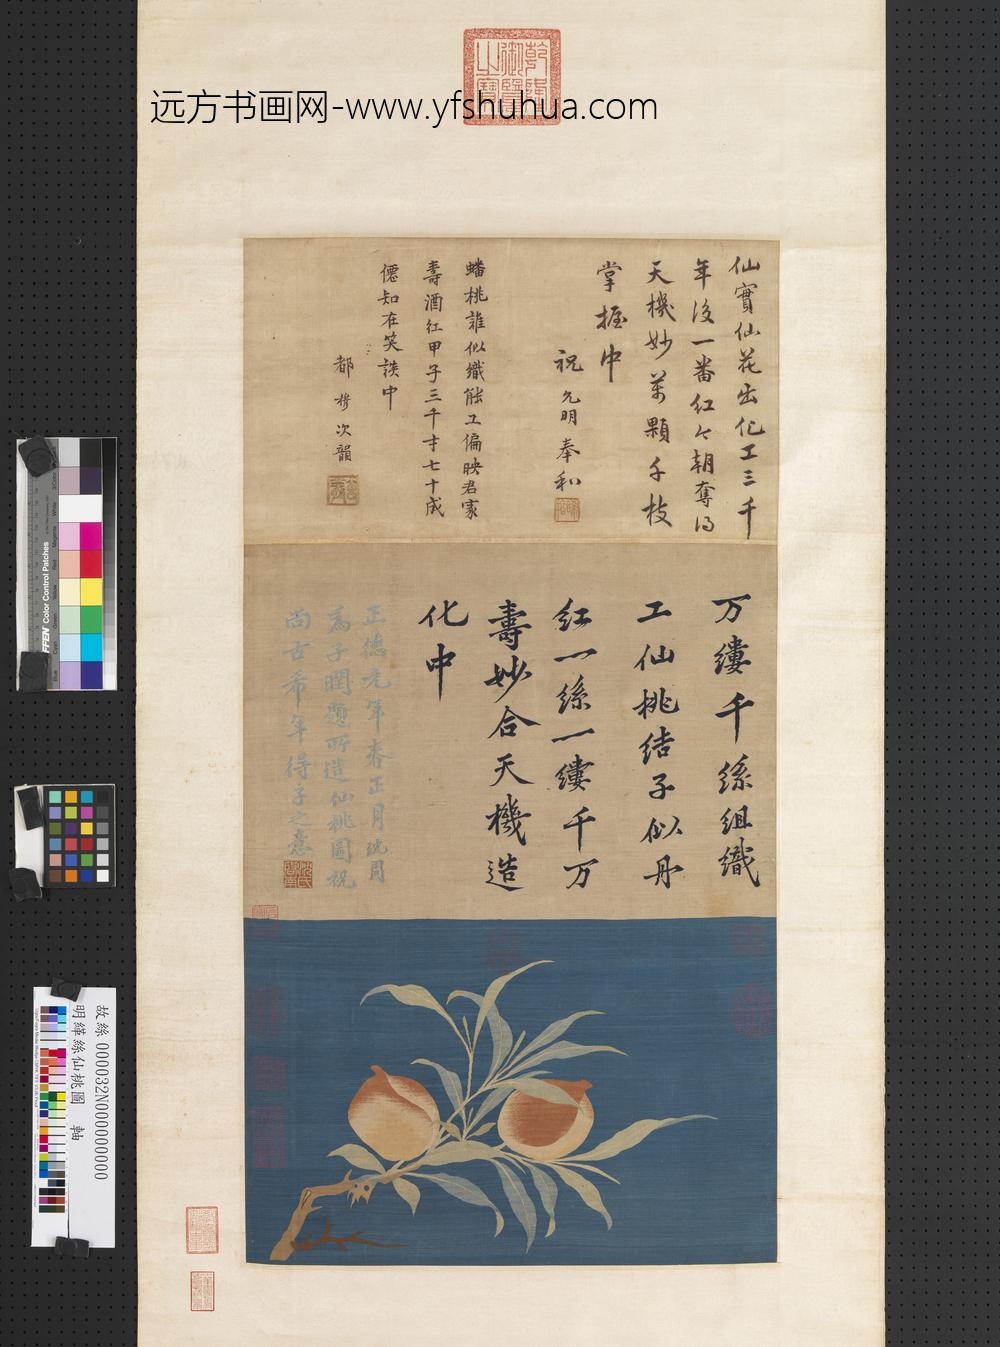 乾隆御覽之寶
远方书画网-www.yfshuhua.com
仙實仙花出化工三千
年後一番紅今朝奪得
天機妙萬顆千枝
掌握中
祝允明奉和
蟠桃誰似織能工偏映君家
壽酒紅甲子三千才七十成
僊知在笑談中
都穆次韻
万縷千絲組織
工仙桃結子似丹
紅一絲一縷千万
壽妙合天機造
化中
正德元年春正月沈周
為子開題所造仙桃圖祝
尚古希年得子之意
故絲 000032N000000000
明緙絲仙桃圖 軸
Color Control Patches